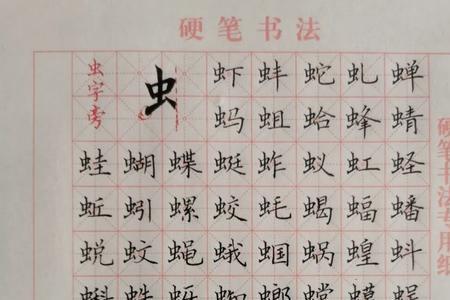 硬笔书法
虫字旁
虫
虾蚌蛇虬蝉
蚂蛆蛤蜂蜻
蛙蝴蝶蜓蚱蚁虹
蚯蚓螺蛟蚝蝎蝠蟠
蜕蚊蝇蛾蝈蜗蝗蚪
蝌蚜蜘螂螳蟆蜈
硬笔书法专用纸